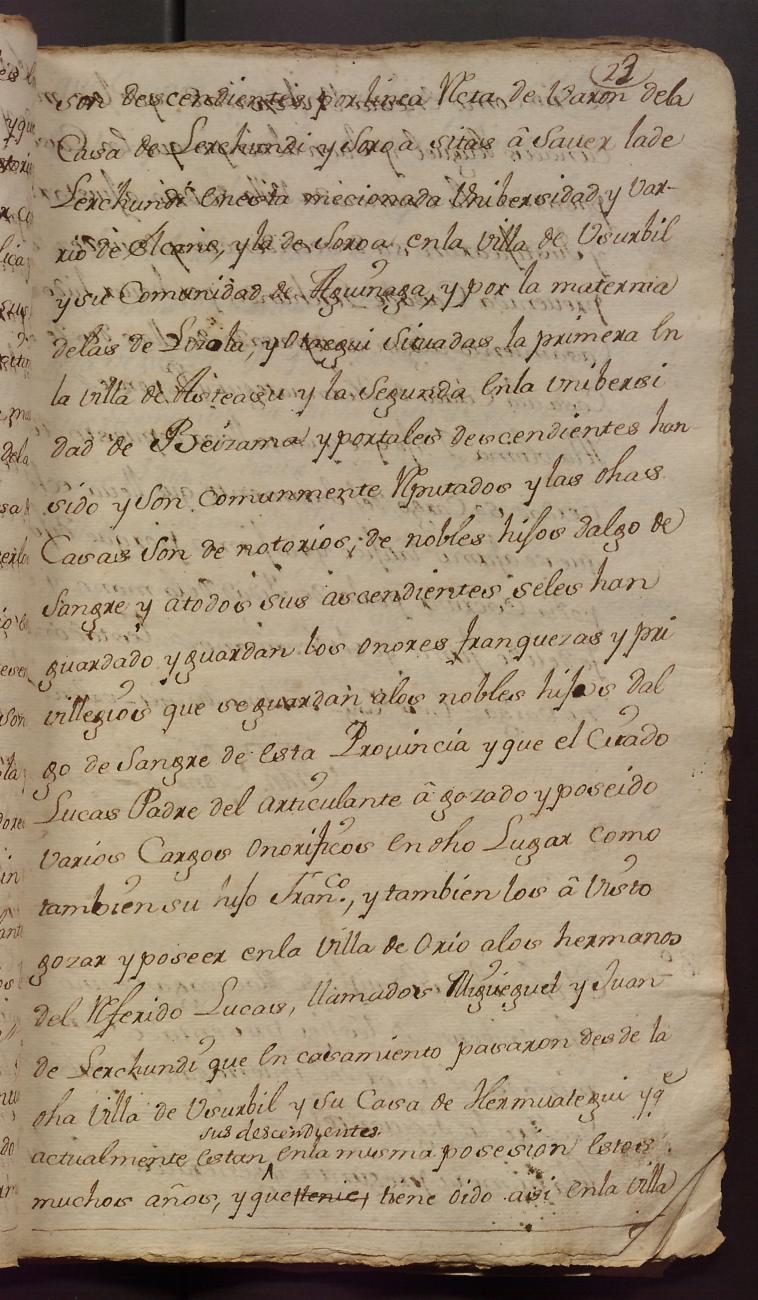 23
son descendientes por linea Recta de Varon dela
Casa de Lerchundi y Soroa sitas â Saver lade
Lerchundi Enesta mecionada Unibersidad y Var-
rio de , y la de Soroa enla villa de Usurbil
y su Comunidad de Aguinaga, y por la materna
delas de , y Otaegui Situadas la primera En
la villa de Asteasu y la Segunda Enla Unibersi
dad de Beizama y portales descendientes han
sido y son comunmente Rputados y las dhas
Casas son de notorios, de nobles hijos dalgo de
Sangre y atodos sus ascendientes seles han
guardado y guardan los onores franquezas y pri
villegios que se guardan alos nobles hijos dal
go de Sangre de Esta Provincia y que el Citado
Lucas Padre del articulante â gozado y poseido
varios Cargos Onorificos En dho Lugar como
tambien su hijo Franco., y tambien los â Visto
gozar y poseer enla Villa de Orio alos hermanos
del Rferido Lucas, llamados Migueguel y Juan
de Lerchundi que En casamiento pasaron desde la
dha Villa de Usurbil y su Casa de Hermuategui y q̃
sus descendientes
actualmente Estan ^ Enla misma posesion Estos
muchos años, y que tiene oido asi enla Villa